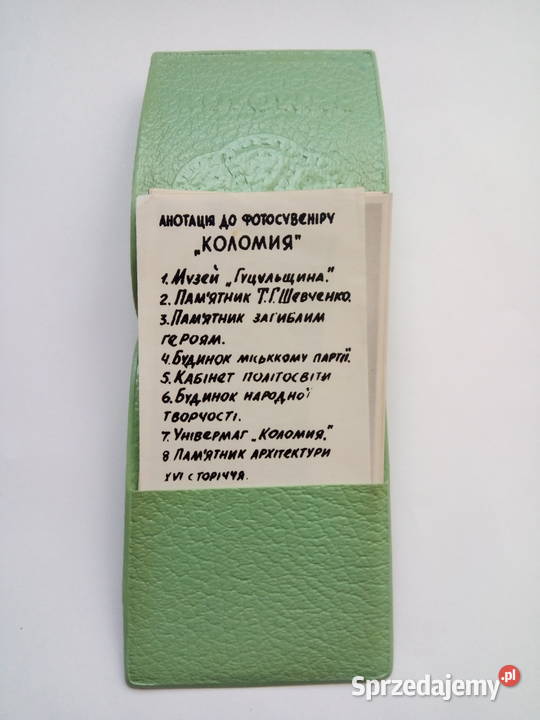 АНОТАЦІЯ ДО ФОТОСУВЕНІРУ
„КОЛОМИЯ"
1. МУЗЕЙ „ГУЦУЛЬЩИНА."
2. ПАМ'ЯТНИК Т.Г.ШЕВЧЕНКО.
3. ПАМ'ЯТНИК ЗАГИБЛИМ
ГЕРОЯМ.
4. БУДИНОК МІСЬККОМУ ПАРТІЇ.
5. КАБІНЕТ ПОЛІТОСВІТИ
6. БУДИНОК НАРОДНОЇ
ТВОРЧОСТІ.
7. УНІВЕРМАГ „КОЛОМИЯ."
8 ПАМ'ЯТНИК АРХІТЕКТУРИ
XVI СТОРІЧЧЯ.
Sprzedajemy.pl